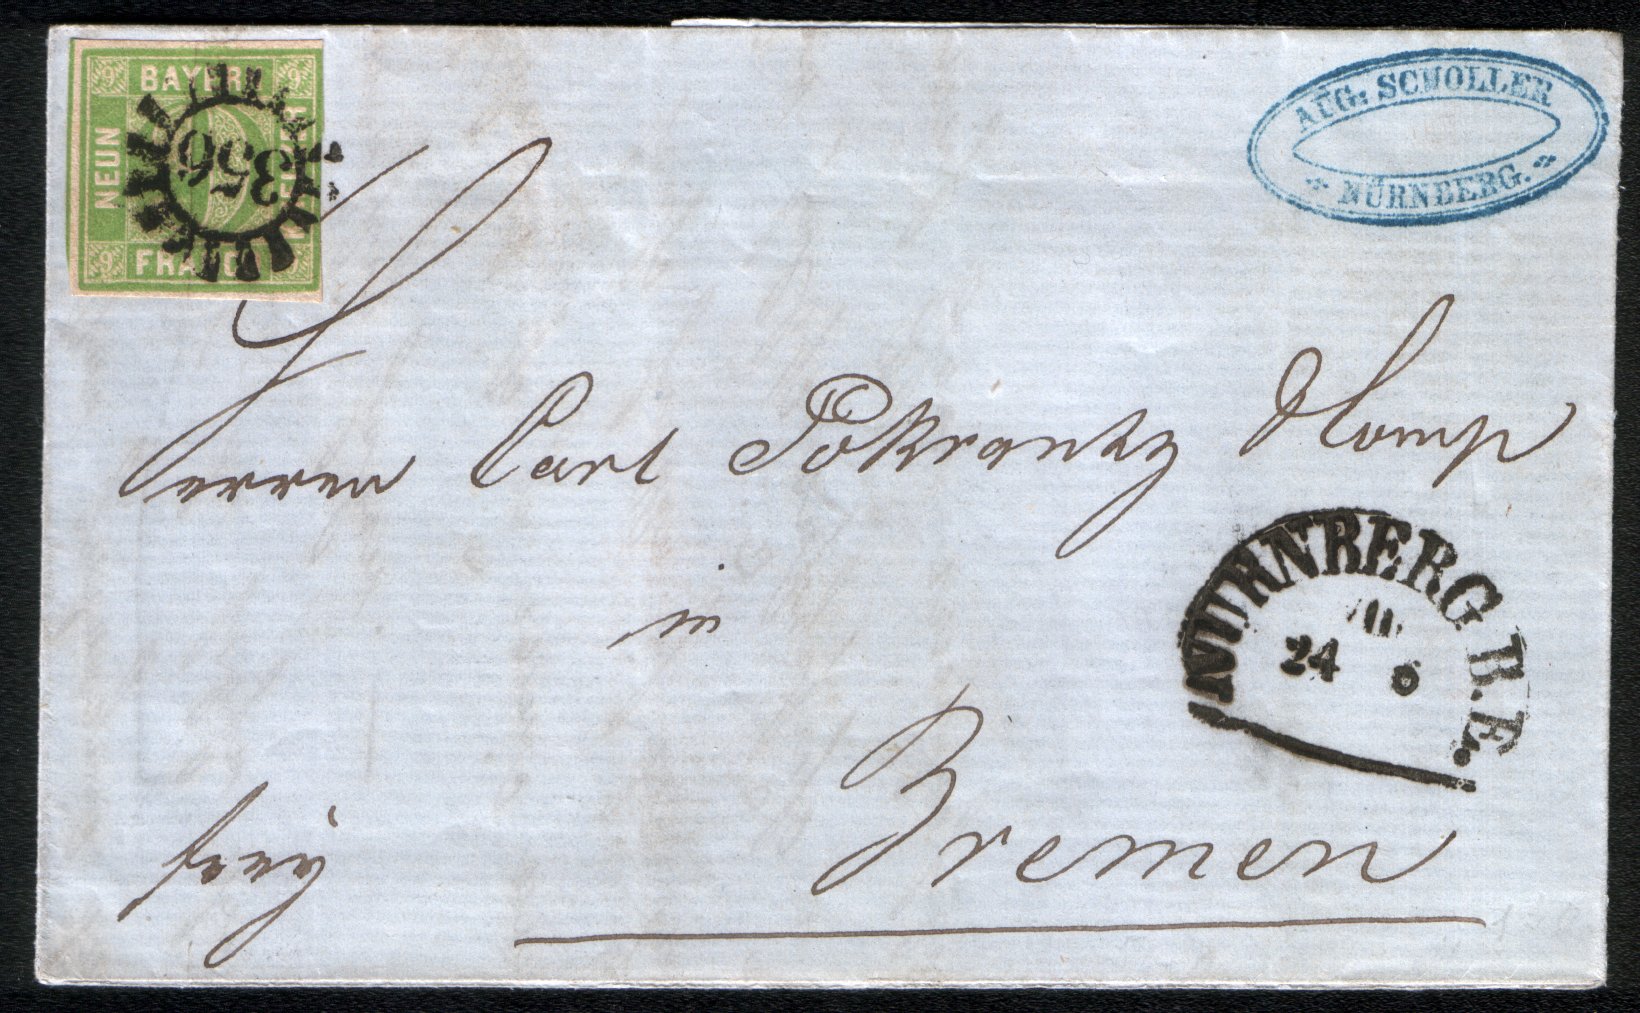 BAYERN
NEUN
NEUN
FRANCO
9
9
9
9
356
AUG: SCHOLLER
NÜRNBERG.
Herren Carl Pokrantz & Comp
in
Bremen
frey
NÜRNBERG B.E.
24 6